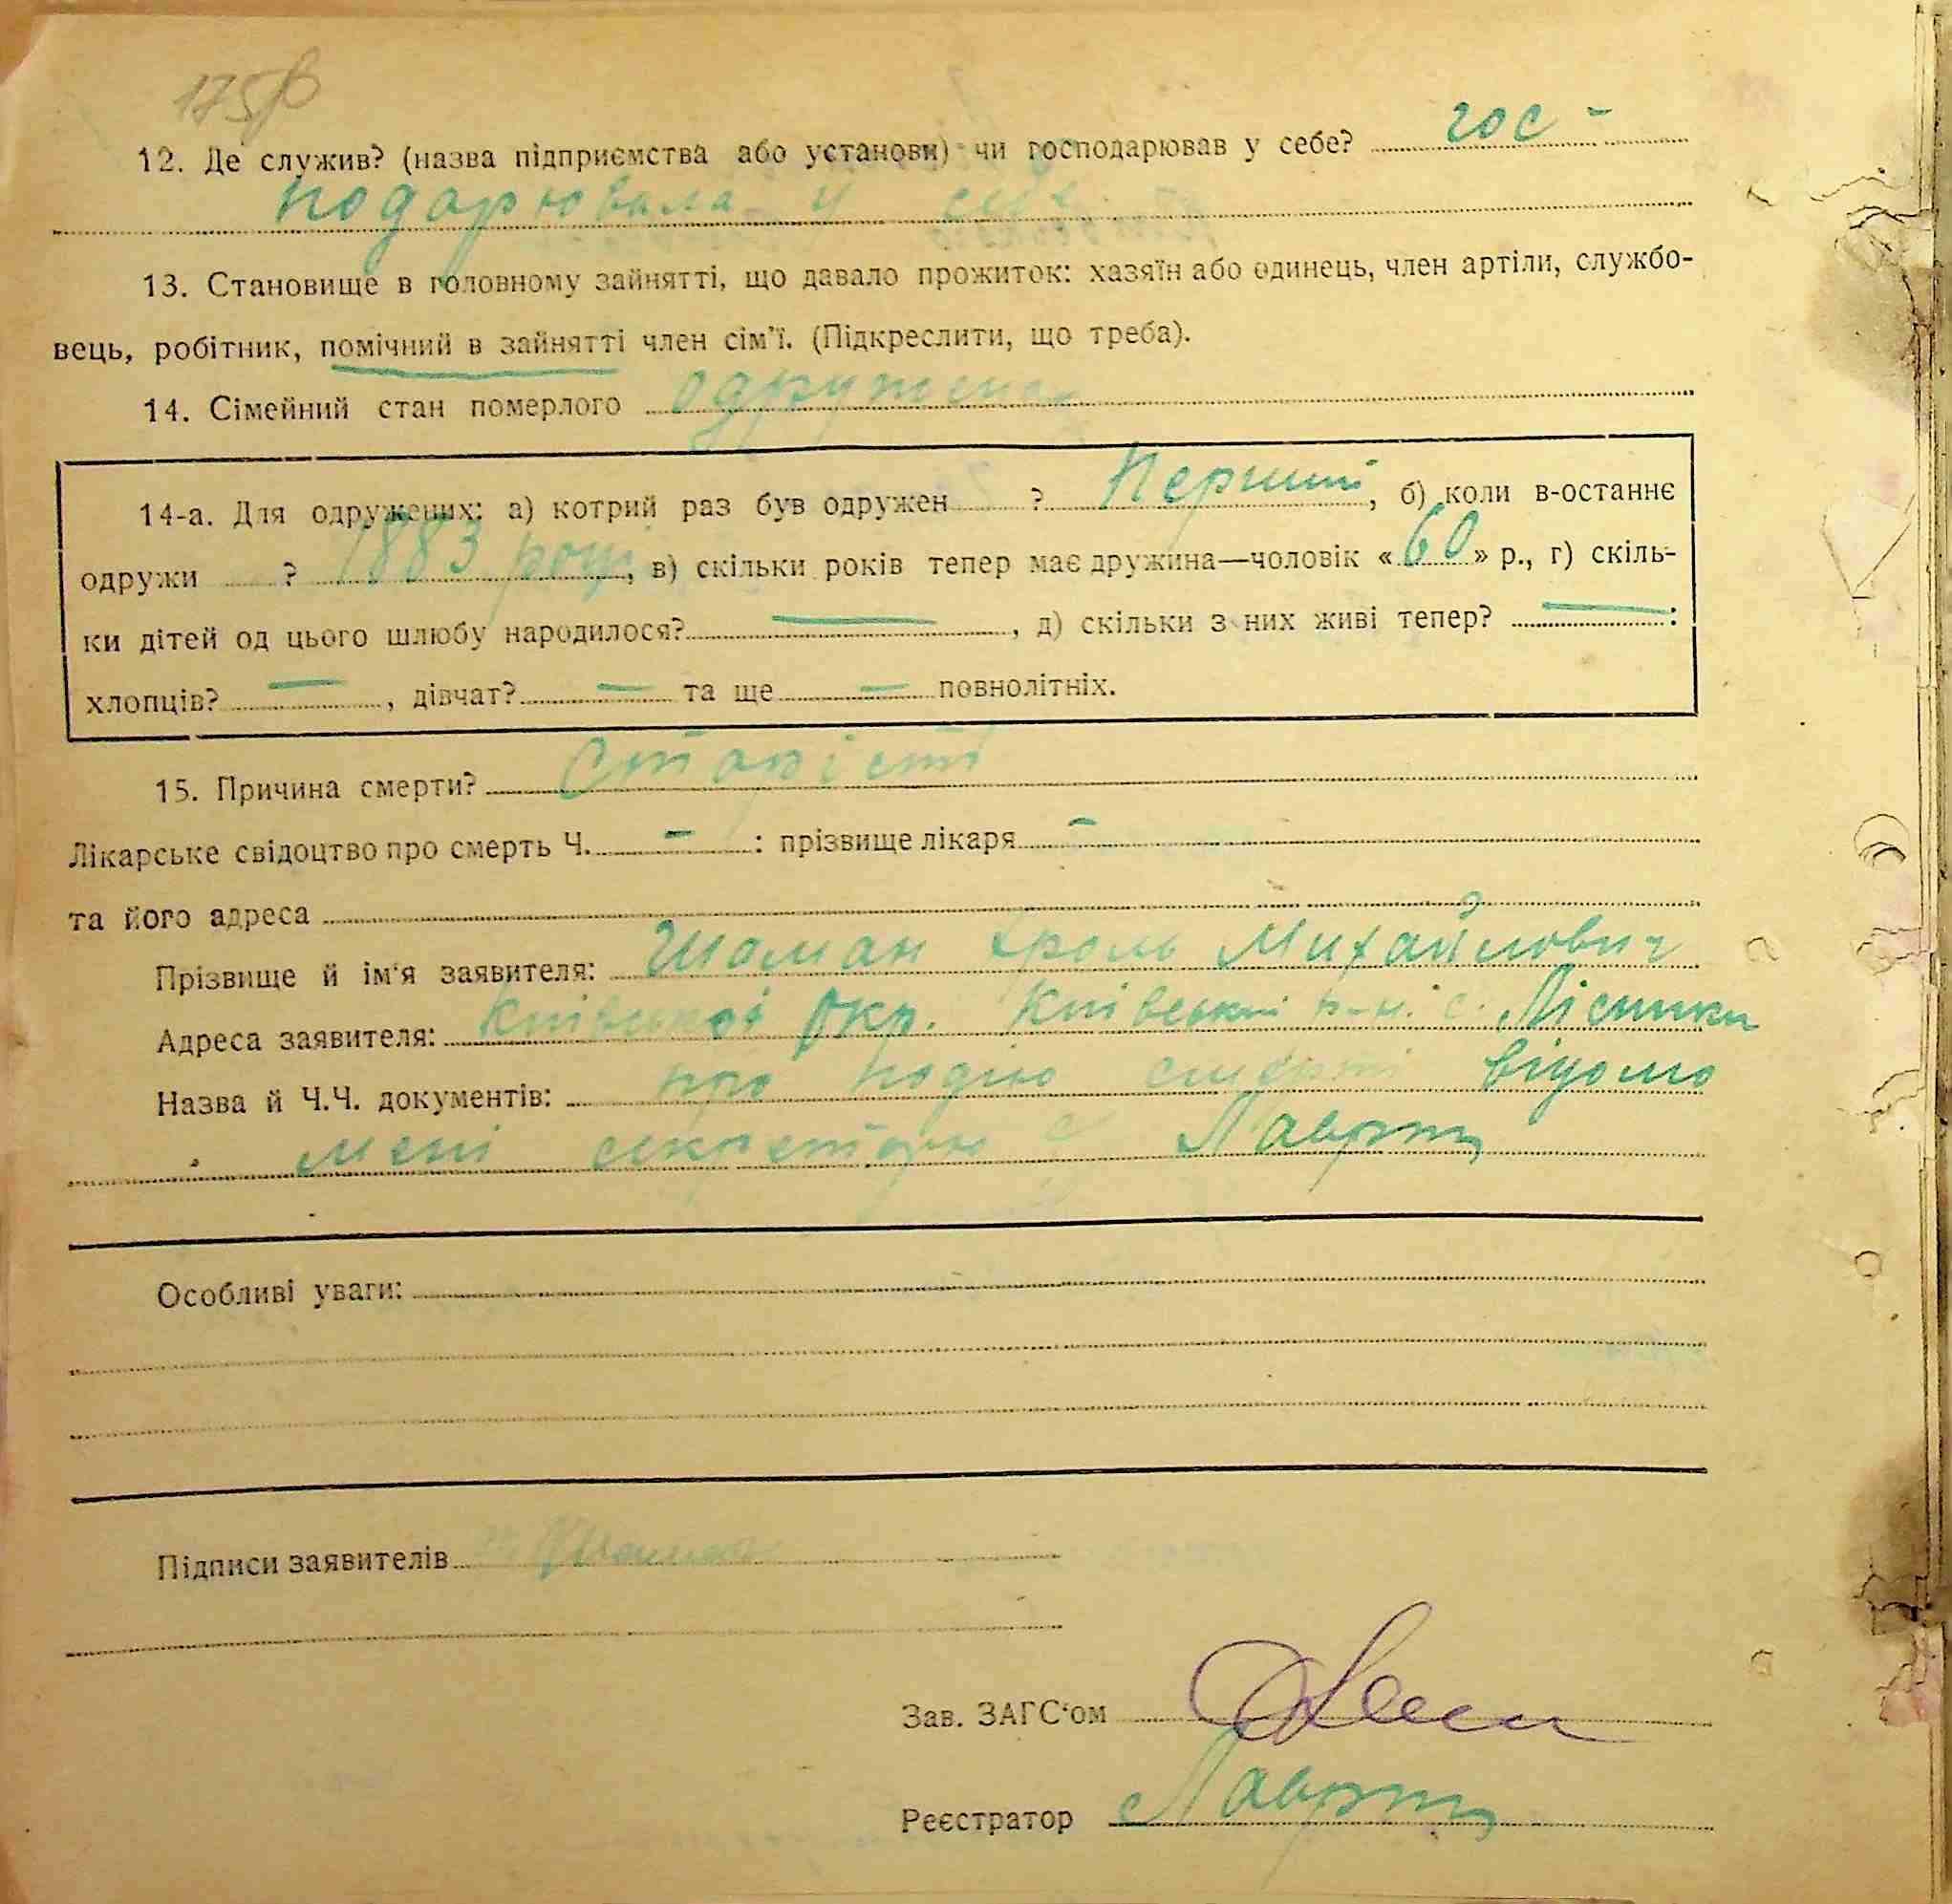 175
12. Де служив? (назва підприємства або установи) чи господарював у себе? гос-
подарювала у себе
13. Становище в головному зайнятті, що давало прожиток: хазяїн або одинець, член артіли, службо-
вець, робітник, помічний в зайнятті член сім'ї. (Підкреслити, що треба).
14. Сімейний стан померлого одружена
14-а. Для одружених: а) котрий раз був одружен ? Перший, б) коли в-останнє
одружи ? 1883 році, в) скільки років тепер має дружина—чоловік «60» р., г) скіль-
ки дітей од цього шлюбу народилося? —, д) скільки з них живі тепер? —:
хлопців? —, дівчат? — та ще — повнолітніх.
15. Причина смерти? Старість
Лікарське свідоцтво про смерть Ч. - : прізвище лікаря -
та його адреса
Прізвище й ім'я заявителя: Шаман Михайлович
Адреса заявителя: Київської Окр. Київський р-н. с.
Назва й Ч.Ч. документів: про подію смерті відомо
мені секретарю с
Особливі уваги:
Підписи заявителів
Зав. ЗАГС'ом
Реєстратор